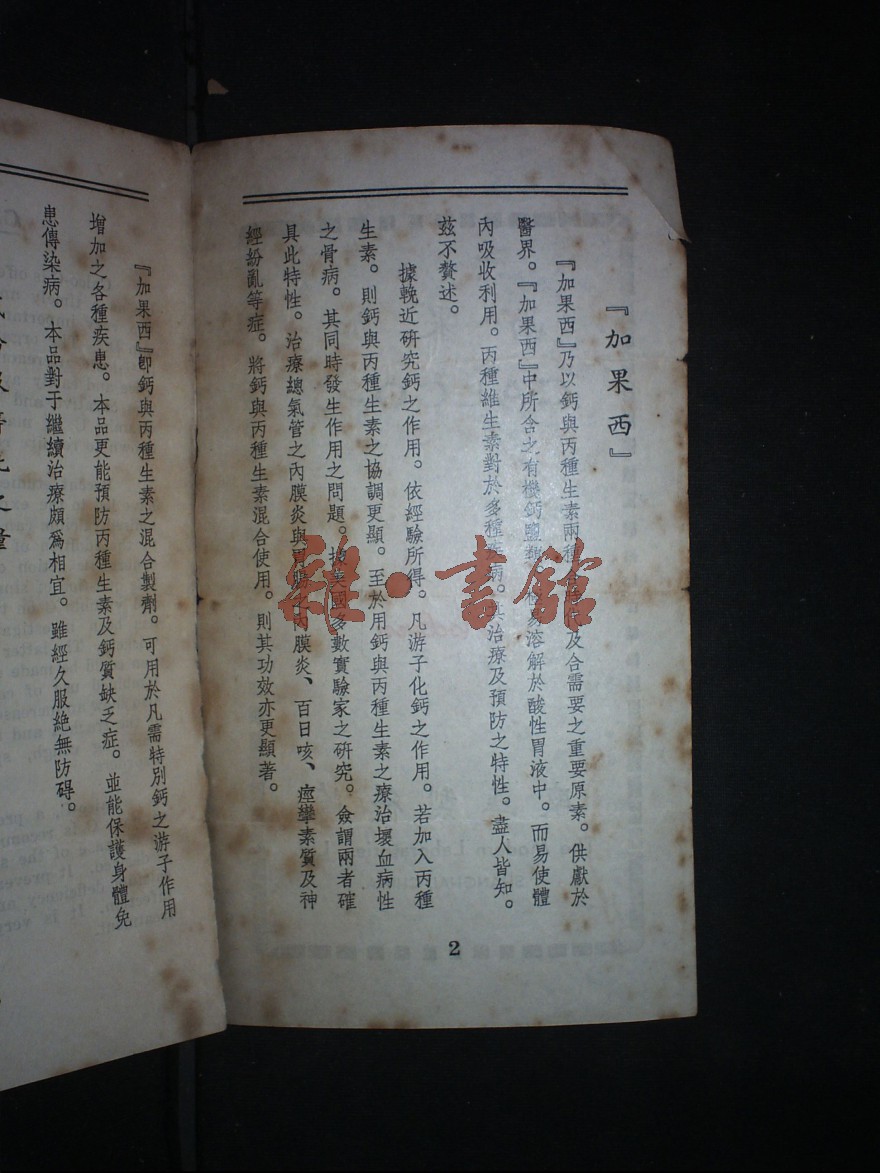 『加果西』
『加果西』乃以鈣與丙種生素兩種 及含需要之重要原素。供獻於
醫界。『加果西』中所含之有機鈣鹽 易溶解於酸性胃液中。而易使體
內吸收利用。丙種維生素對於多種疾病。其治療及預防之特性。盡人皆知。
茲不贅述。
據輓近研究鈣之作用。依經驗所得。凡游子化鈣之作用。若加入丙種
生素。則鈣與丙種生素之協調更顯。至於用鈣與丙種生素之療治壞血病性
之骨病。其同時發生作用之問題。據美國多數實驗家之研究。僉謂兩者確
具此特性。治療總氣管之內膜炎與胃腸之內膜炎、百日咳、痙攣素質及神
經紛亂等症。將鈣與丙種生素混合使用。則其功效亦更顯著。
2
『加果西』卽鈣與丙種生素之混合製劑。可用於凡需特別鈣之游子作用
增加之各種疾患。本品更能預防丙種生素及鈣質缺乏症。並能保護身體免
患傳染病。本品對于繼續治療頗爲相宜。雖經久服絶無防碍。
雜·書館